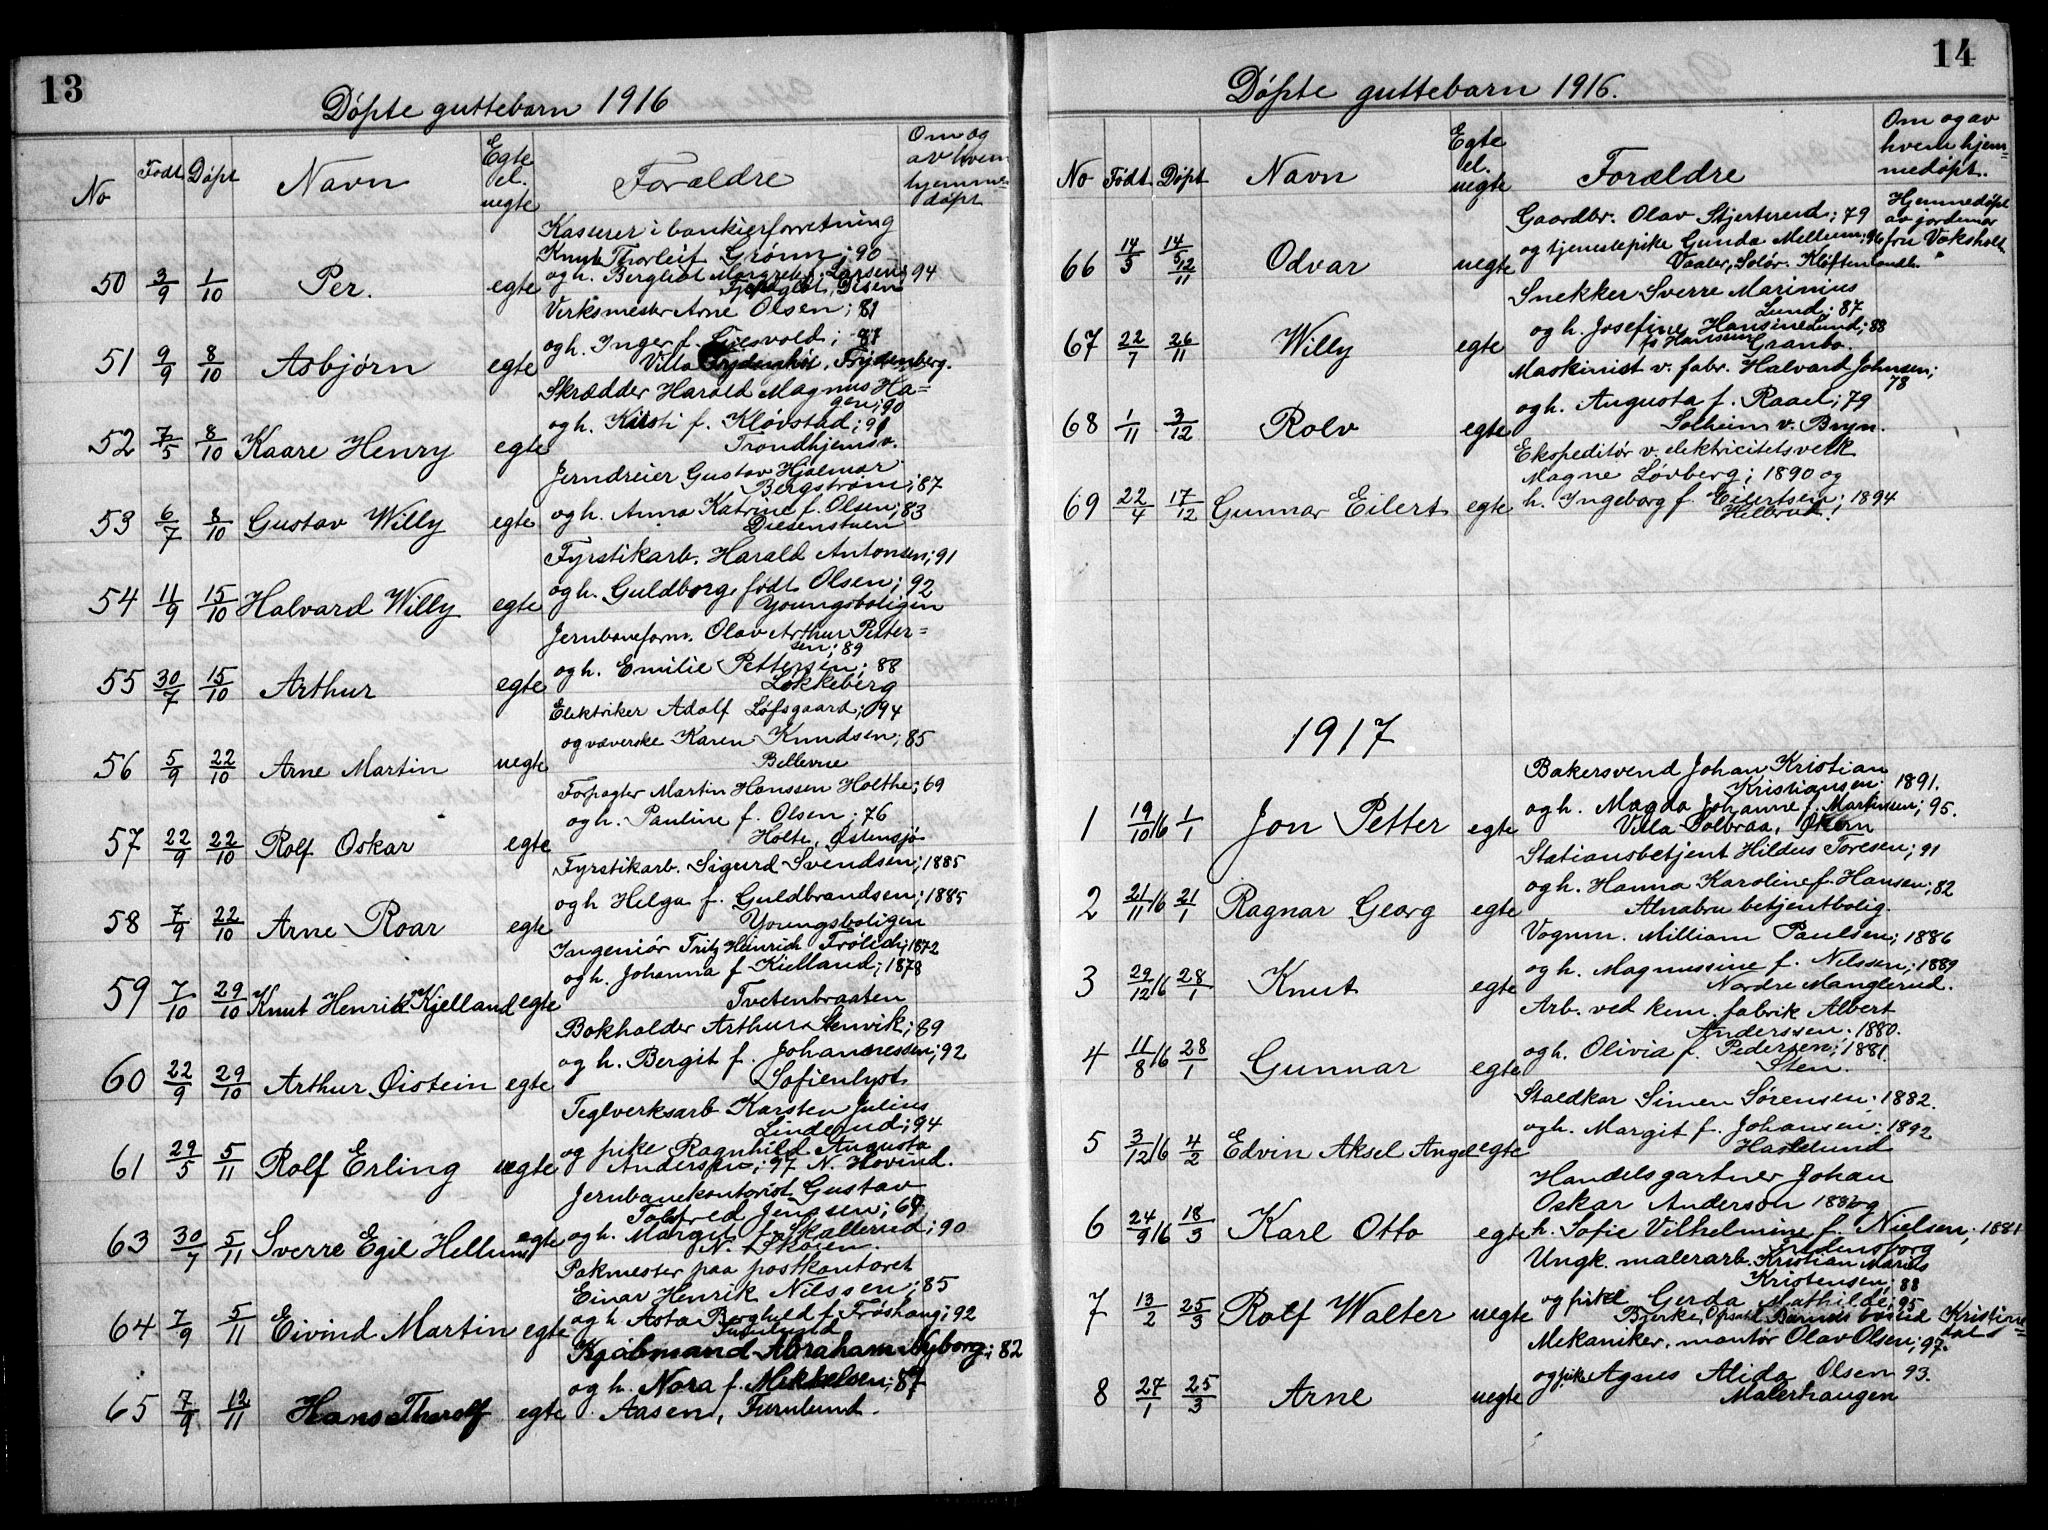 13
Döpte guttebarn 1916
No Födt Döpt Navn Egte el. uegte Forældre Om og av hvem hjemme-döpt
Kasserer i bankierforretning
Knut Thorleif Grönn; 90
50 3/9 1/10 Per. egte og h. Bergliot Margrete f. Larsen; 94
Disen
Verksmester Arne Olsen; 81
og h. Inger f. ; 87
51 9/9 8/10 Asbjørn egte Villa Frydenberg.
Skrædder Harald Magnus Ha=
gen; 90
og h. Kirsti f. Klövstad; 91
52 7/5 8/10 Kaare Henry egte Trondhjemsv.
Jerndreier Gustav Hjalmar
Bergström; 87
53 6/7 8/10 Gustav Willy egte og h. Anna Katrine f. Olsen; 83
Diesenstuen
Fyrstikarb. Harald Antonsen; 91
54 11/9 15/10 Halvard Willy egte og h. Guldborg födt Olsen; 92
Youngsboligen
Jernbaneform. Olav Arthur Petter=
sen; 89
55 30/7 15/10 Arthur egte og h. Emilie Pettersen; 88
Løkkeberg
Elektriker Adolf Löfsgaard; 94
og væverske Karen Knudsen; 85
56 5/9 22/10 Arne Martin uegte Bellevue
Forpagter Martin Hanssen Holthe; 69
og h. Pauline f. Olsen; 76
57 22/9 22/10 Rolf Oskar egte Holte, Østensjö
Fyrstikarb. Sigurd Svendsen; 1885
og h Helga f. Guldbrandsen; 1885
58 7/9 22/10 Arne Roar egte Youngsboligen
Ingeniör Fritz Heinrich Frölich; 1872
og h. Johanna f Kielland; 1878
59 7/10 29/10 Knut Henrik Kjelland egte Tvetenbraaten
Bokholder Arthur Stenvik; 89
og h. Bergit f. Johannessen; 92
60 22/9 29/10 Arthur Øistein egte Sofienlyst
Teglverksarb Karsten Julius
Linderud; 94
61 29/5 5/11 Rolf Erling uegte og pike Ragnhild Augusta
Andersen; 97 N. Hovind.
Jernbanekontorist Gustav
Jenssen; 69
63 30/7 5/11 Sverre Egil Hellum egte og h. Margit f. Skallerud; 90
N. Skøien.
Pakmester paa postkontoret
Einar Henrik Nilssen; 85
64 7/9 5/11 Eivind Martin egte og h. Asta Borghild f. Fröshaug; 92
Kjöbmand Abraham Nyborg; 82
og h. Nora f. Mikkelsen; 87
65 7/9 12/11 Hans Tharolf egte Aasen, Furulund.
14
Döpte guttebarn 1916.
No Födt Döpt Navn Egte el. uegte Forældre Om og av hvem hjem=medöpt.
Gaardbr. Olav Stjertsrud; 79 Hjemmedöpt av jordemor
66 14/5 14/5 12/11 Odvar uegte og tjenestepike Gunda Mellum; 96 fru Voksholt
Vaaler, Solör.
Snekker Sverre Marinius
Lund; 87
67 22/7 26/11 Willy egte og h. Josefine Hansine Lund; 88
fs Hanssen Granbo.
Maskinist v. fabr. Halvard Johnsen;
78
og h. Augusta f. Raael; 79
68 1/11 3/12 Rolv egte Solheim v. Bryn.
Ekspeditör v. elektricitetsverk
Magne Lövberg; 1890 og
69 22/4 17/12 Gunnar Eilert egte h. Ingeborg f. Eilertsen; 1894
Hellerud.
1917
Bakersvend Johan Kristian
Kristiansen; 1891.
og h. Magda Johanne f. Martinsen; 95.
1 19/10 16 1/1 Jon Petter egte Villa Solbraa, Økern
Stationsbetjent Hildus Toresen; 91
og h. Hanna Karoline f. Hansen; 82
2 21/11 16 21/1 Ragnar Georg egte Alnabru betjentbolig.
Vognm. Milliam Paulsen; 1886
og h. Magnussine f. Nilssen; 1889
3 29/12 16 28/1 Knut egte Nordre Manglerud.
Arb. ved kem. fabrik Albert
Anderssen. 1880.
4 11/8 16 28/1 Gunnar egte og h. Olivia f. Pedersen; 1881.
Sten.
Staldkar Simen Sørensen. 1882.
og h. Margit f. Johansen; 1892
5 3/12 16 4/2 Edvin Aksel Angel egte Haslelund
Handelsgartner Johan
Oskar Anderson 1886 og
6 24/9 16 18/3 Karl Otto egte h. Sofie Vilhelmine f. Nielsen; 1881
Lindensborg
Ungk. malerarb. Kristian Marius
Kristensen; 88
7 13/2 25/3 Rolf Walter uegte og pike Gerda Mathilde; 95
Bjerke, Opsal Kristine=
dal
Mekaniker, montör Olav Olsen; 97.
og pike Agnes Alida Olsen 93.
8 27/1 25/3 Arne uegte Malerhaugen